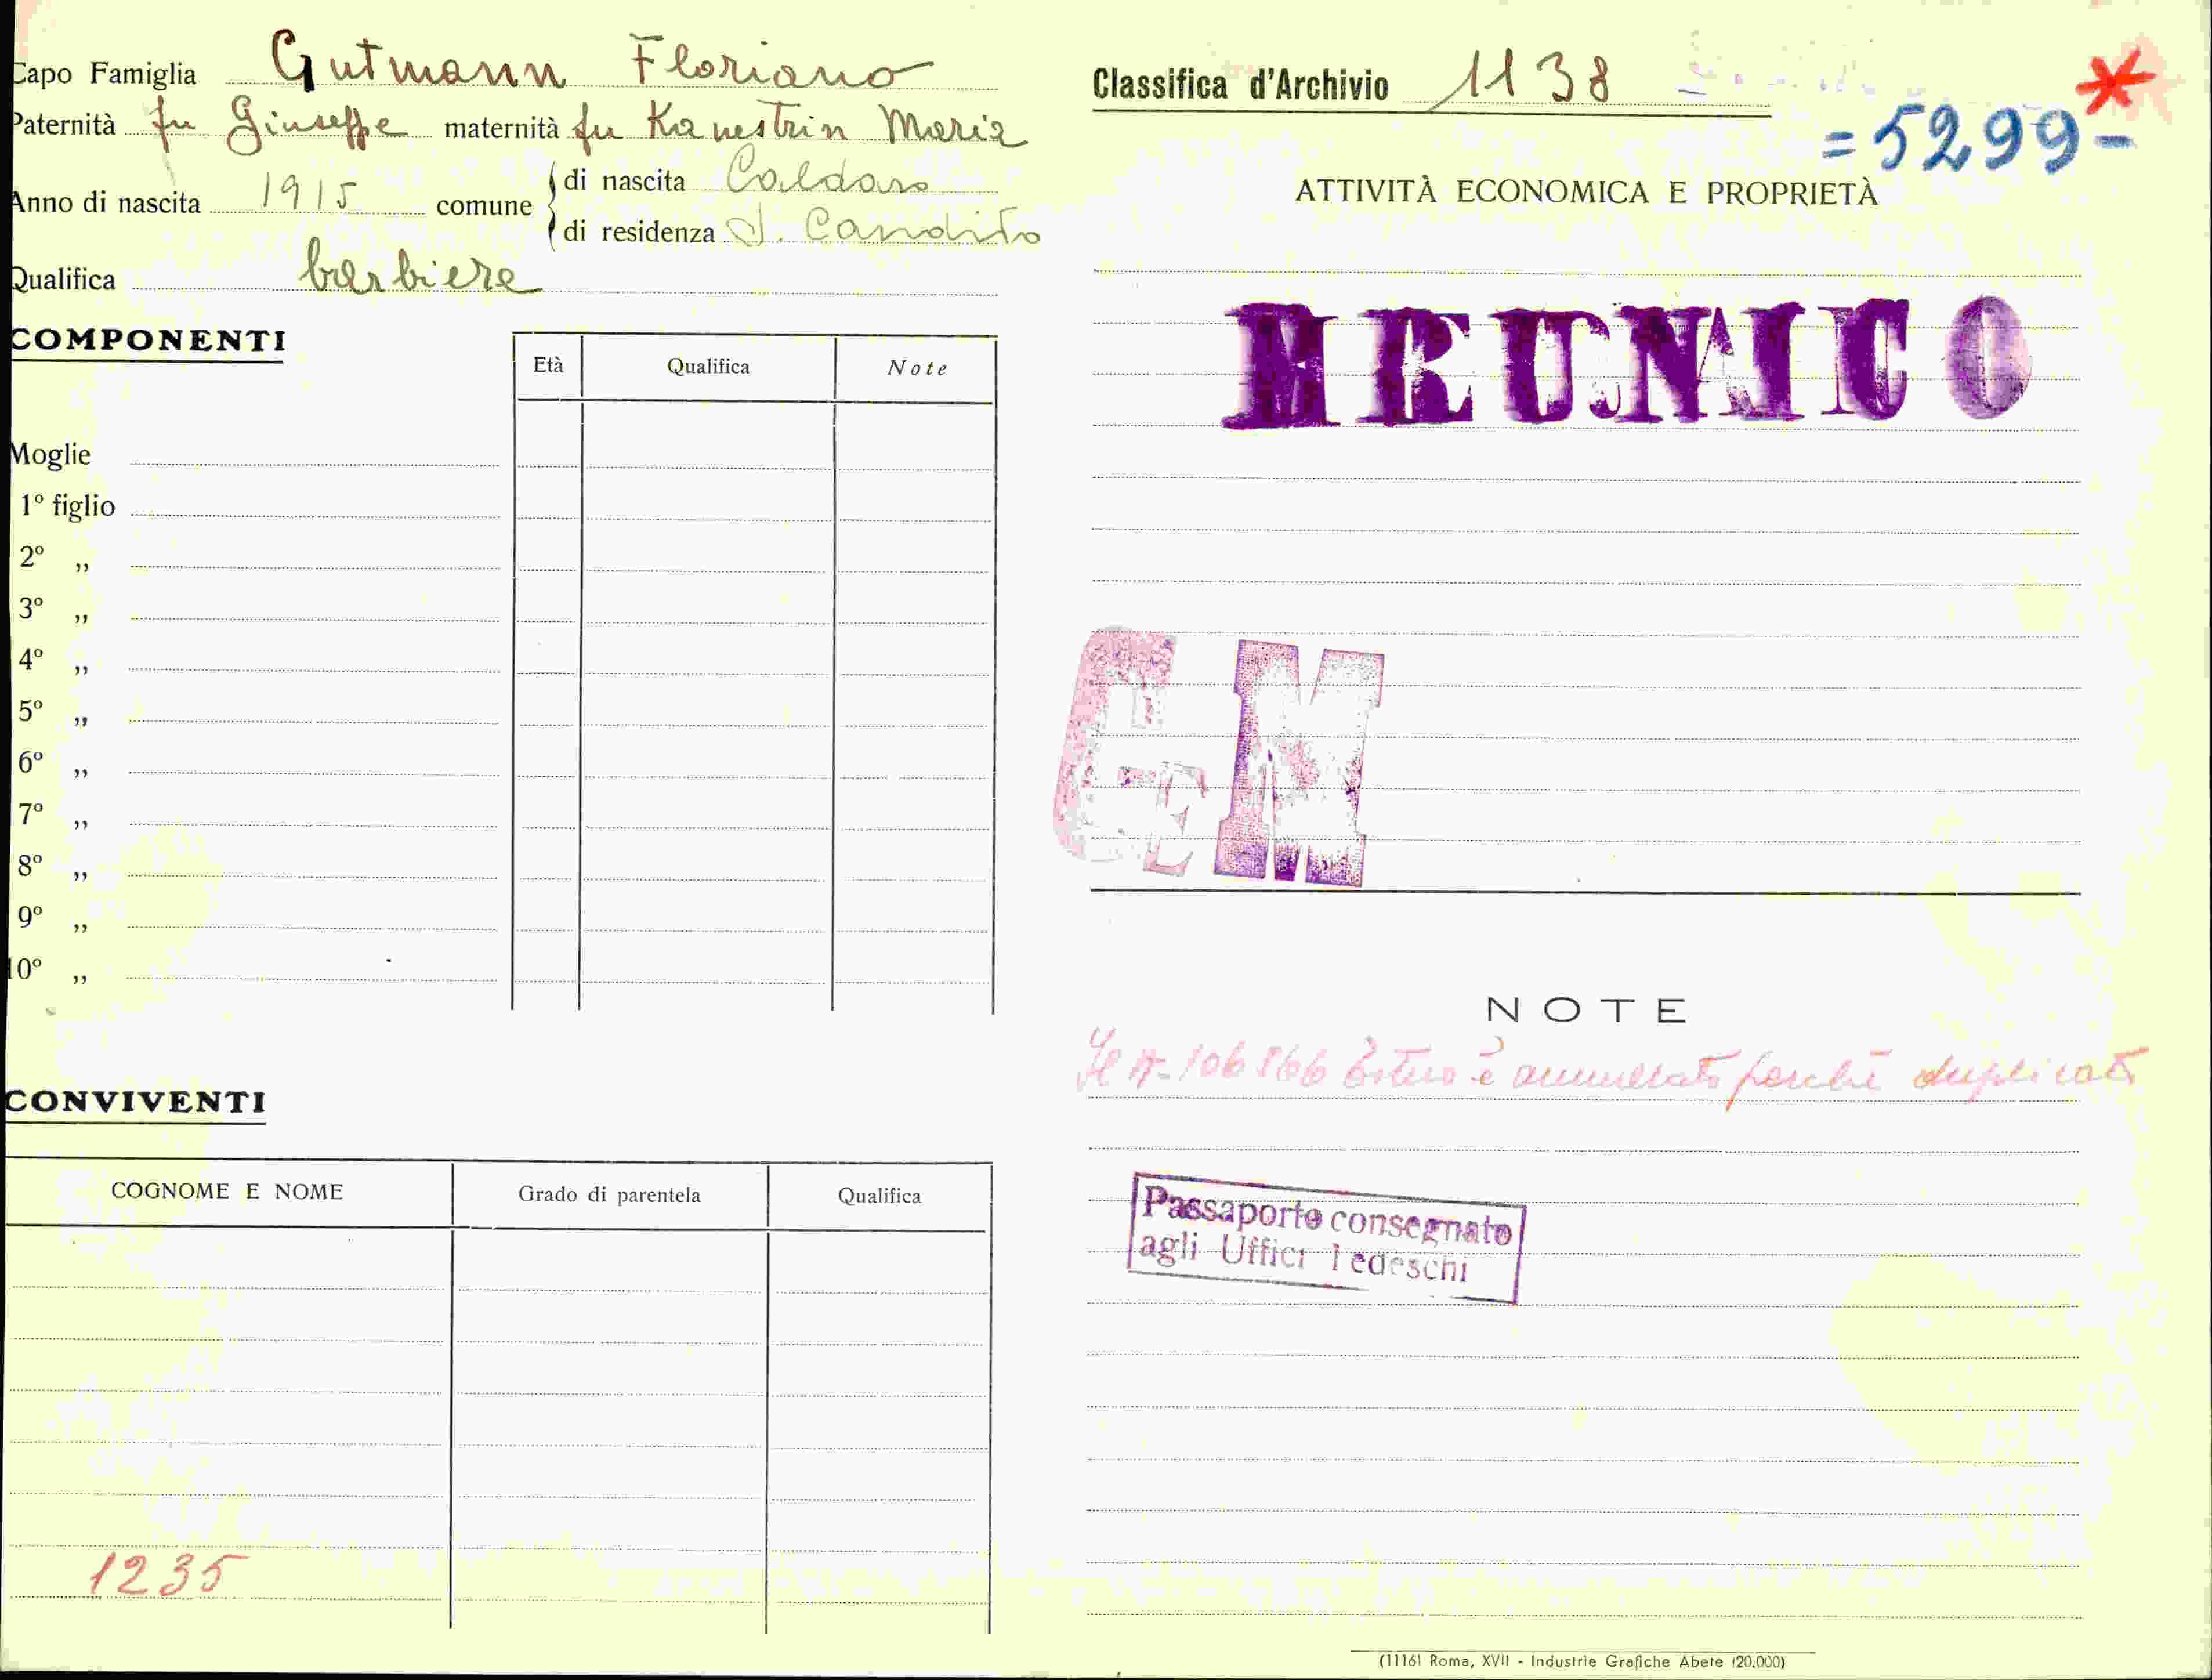 Capo Famiglia Gutmann Floriano
Paternità fu Giuseppe maternità fu Kanestrin Maria
Anno di nascita 1915 comune di nascita Caldaro
di residenza S. Candido
Qualifica barbiere
COMPONENTI
Età Qualifica Note
Moglie
1º figlio
2º „
3º „
4º „
5º „
6º „
7º „
8º „
9º „
10º „
CONVIVENTI
COGNOME E NOME Grado di parentela Qualifica
1235
Classifica d'Archivio 1138
=5299-
ATTIVITÀ ECONOMICA E PROPRIETÀ
BRUNICO
GM
E
NOTE
Il N. 106866 Estero è annullato perchè duplicato
Passaporto consegnato
agli Uffici Tedeschi
(1116) Roma, XVII - Industrie Grafiche Abete (20.000)